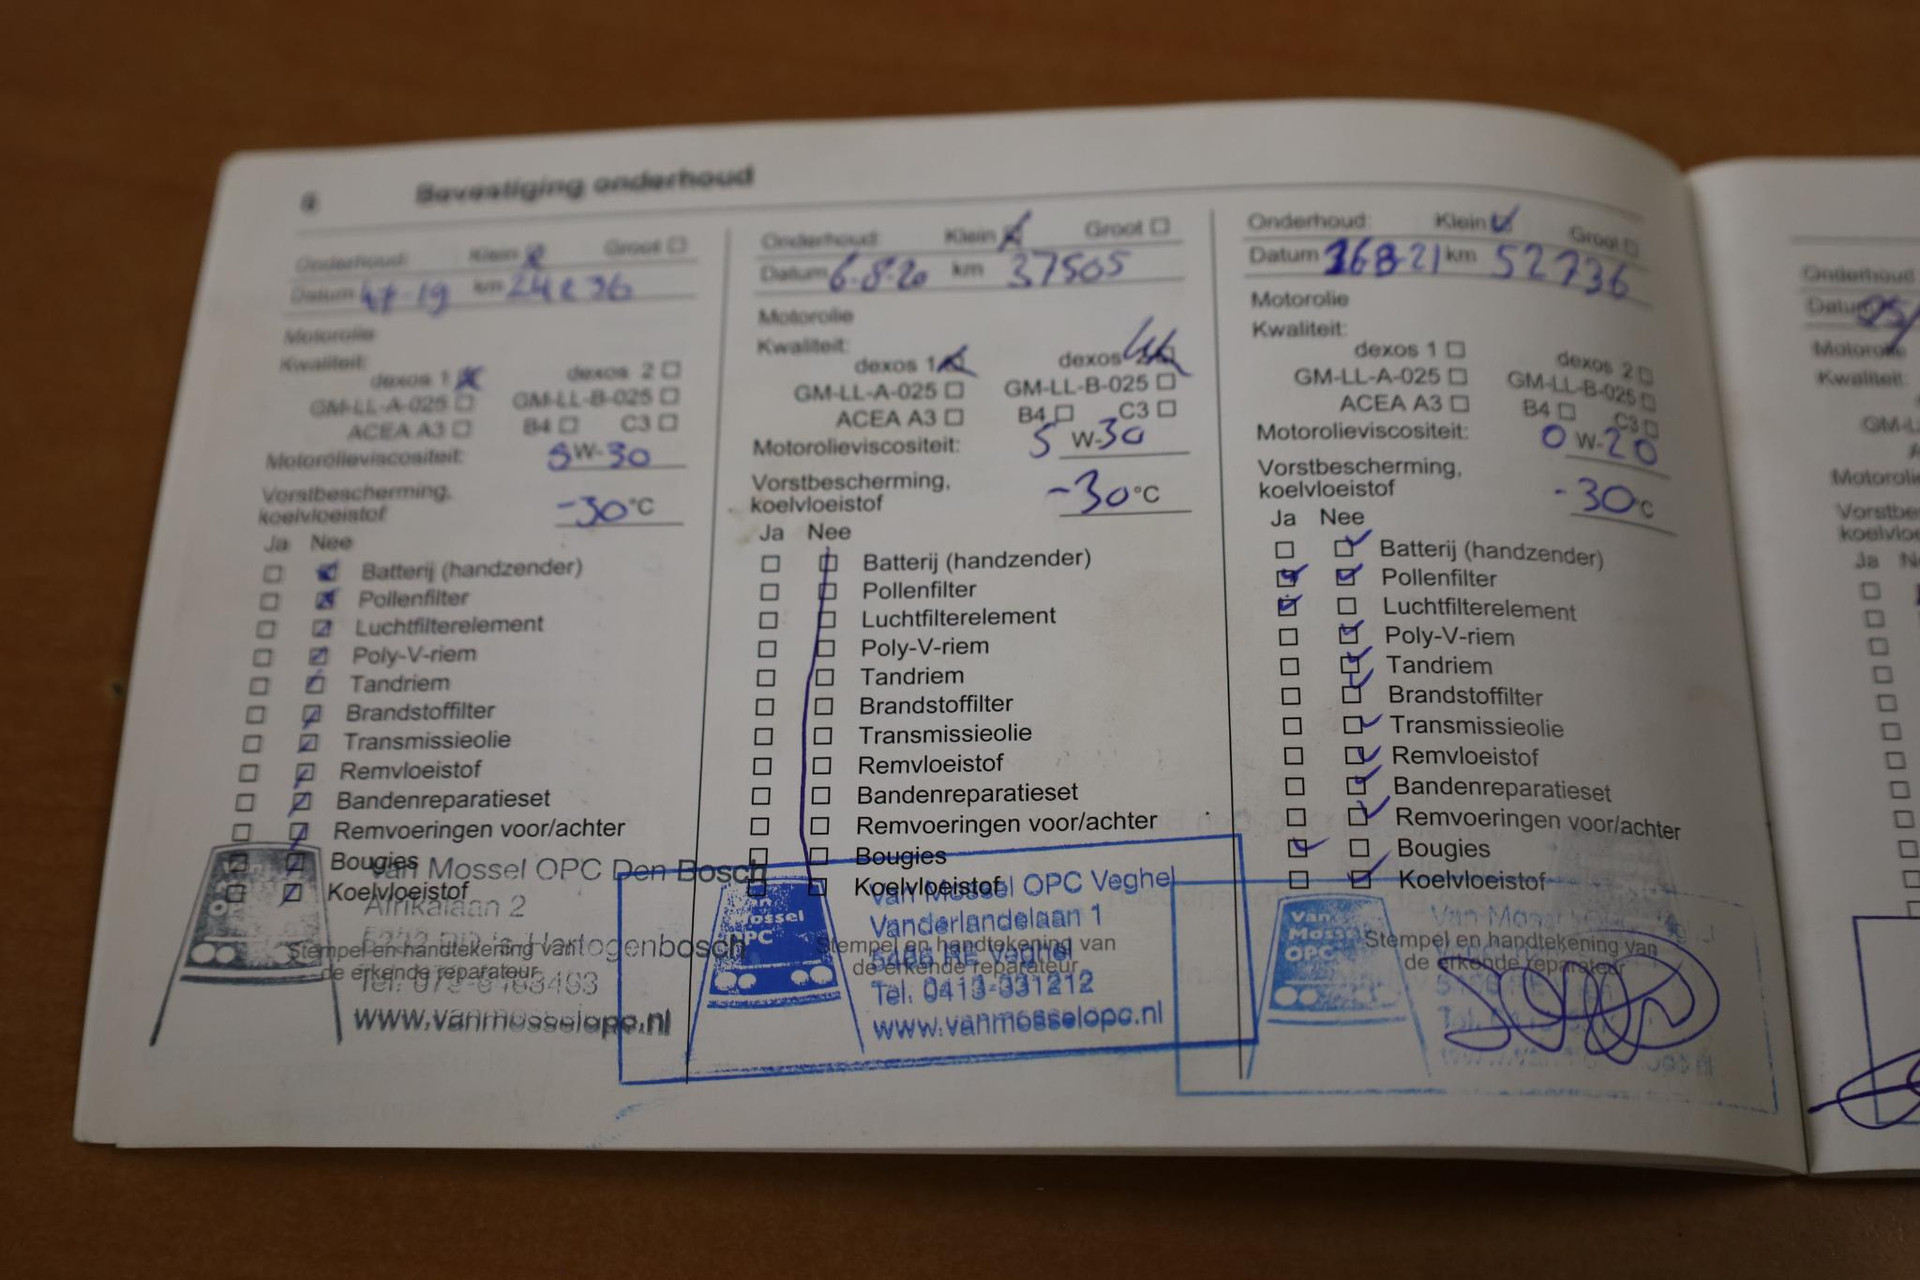 6 Bevestiging onderhoud
Onderhoud: Klein Groot
Datum 4-7-19 km
Motorolie
Kwaliteit:
dexos 1 dexos 2
GM-LL-A-025 GM-LL-B-025
ACEA A3 B4 C3
Motorolieviscositeit: 5W-30
Vorstbescherming,
koelvloeistof -30°C
Ja Nee
Batterij (handzender)
Pollenfilter
Luchtfilterelement
Poly-V-riem
Tandriem
Brandstoffilter
Transmissieolie
Remvloeistof
Bandenreparatieset
Remvoeringen voor/achter
Bougies
Koelvloeistof
Van Mossel OPC Den Bosch
Afrikalaan 2
's-Hertogenbosch
Stempel en handtekening van
de erkende reparateur
www.vanmosselopc.nl
Onderhoud: Klein Groot
Datum 6-8-20 km 37505
Motorolie
Kwaliteit:
dexos 1 dexos 2
GM-LL-A-025 GM-LL-B-025
ACEA A3 B4 C3
Motorolieviscositeit: 5 W-30
Vorstbescherming,
koelvloeistof -30°C
Ja Nee
Batterij (handzender)
Pollenfilter
Luchtfilterelement
Poly-V-riem
Tandriem
Brandstoffilter
Transmissieolie
Remvloeistof
Bandenreparatieset
Remvoeringen voor/achter
Bougies
Koelvloeistof
Van Mossel OPC
Van Mossel OPC Veghel
Vanderlandelaan 1
Stempel en handtekening van
5466 RE Veghel
de erkende reparateur
Tel. 0413-331212
www.vanmosselopc.nl
Onderhoud: Klein Groot
Datum 16-8-21 km 52736
Motorolie
Kwaliteit:
dexos 1 dexos 2
GM-LL-A-025 GM-LL-B-025
ACEA A3 B4 C3
Motorolieviscositeit: 0 W-20
Vorstbescherming,
koelvloeistof -30°C
Ja Nee
Batterij (handzender)
Pollenfilter
Luchtfilterelement
Poly-V-riem
Tandriem
Brandstoffilter
Transmissieolie
Remvloeistof
Bandenreparatieset
Remvoeringen voor/achter
Bougies
Koelvloeistof
Van Mossel OPC
Stempel en handtekening van
de erkende reparateur
Onderhoud
Datum
Motorolie
Kwaliteit:
Ja